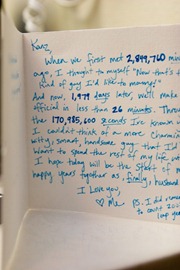 Kenz,
When we first met 2,849,760 min
ago, I thought to myself "Now that's t
kind of guy I'd like to marry!"
And now, 1,979 days later, we'll make
official in less than 26 minutes. Throu
the 170,985,600 seconds I've known
I couldn't think of a more charmin
witty, smart, handsome guy that I'd
want to spend the rest of my life wit
I hope today will be the start of m
happy years together as, finally, husband
I Love you,
♡ Me
P.S. I did reme
to count 20
leap yea